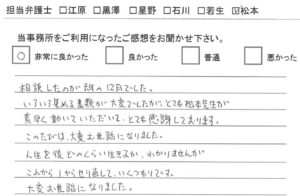 担当弁護士 □江原 □黒澤 □星野 □石川 □若生 ☑松本
当事務所をご利用になったご感想をお聞かせ下さい。
○ 非常に良かった □ 良かった □ 普通 □ 悪かった
相談したのが 12月でした。
いろいろ集める書類が大変でしたが、とても松本先生が
素早く動いていただいて、とても感謝しております。
このたびは、大変お世話になりました。
人生を後どのくらい生きるか、わかりませんが
これから1からやり直して、いくつもりです。
大変お世話になりました。